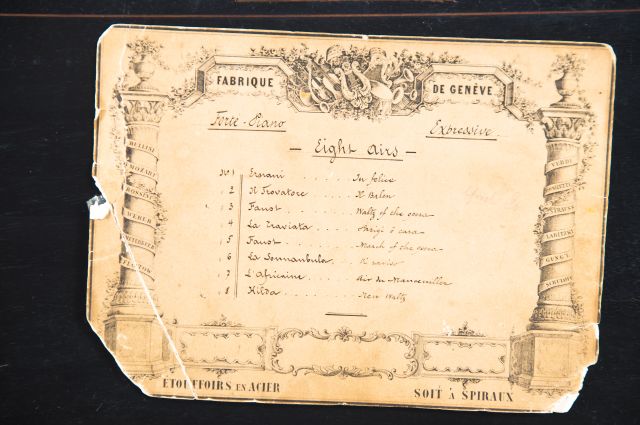 FABRIQUE DE GENÈVE
Forté-Piano Expressive
- Eight airs -
No 1 Ernani . . . . . . . In felice
2 Il Trovatore . . . . . Il Balen
3 Faust . . . . . . . Waltz of the opera
4 La Traviata . . . . . Parigi o cara
5 Faust . . . . . . . March of the opera
6 La Sonnanbula . . . .
7 L'Africaine . . . . Air du
8 Hilda . . . . . New Waltz
BELLINI
MOZART
ROSSINI
WEBER
MEYERBEER
VERDI
DONIZETTI
STRAUSS
LABITZKI
GUNG'L
SCHULHOFF
ETOUFFOIRS EN ACIER
SOIT À SPIRAUX